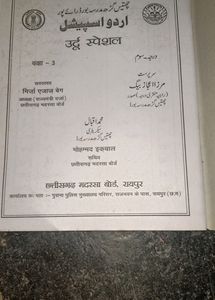 چھتیس گڑھ مدرسہ بورڈ رائے پور
اردو اسپیشل
उर्दू स्पेशल
कक्षा - 3
درجہ سوم
संरक्षक
मिर्जा एजाज बेग
अध्यक्ष (राज्यमंत्री दर्जा)
छत्तीसगढ़ मदरसा बोर्ड
سرپرست
مرزا اعجاز بیگ
چھتیس گڑھ مدرسہ بورڈ
محمد اقبال
سیکریٹری
چھتیس گڑھ مدرسہ بورڈ
मोहम्मद इकबाल
सचिव
छत्तीसगढ़ मदरसा बोर्ड
छत्तीसगढ़ मदरसा बोर्ड, रायपुर
कार्यालय का पता : पुराना पुलिस मुख्यालय परिसर, राजभवन के पास, रायपुर (छ.ग.)